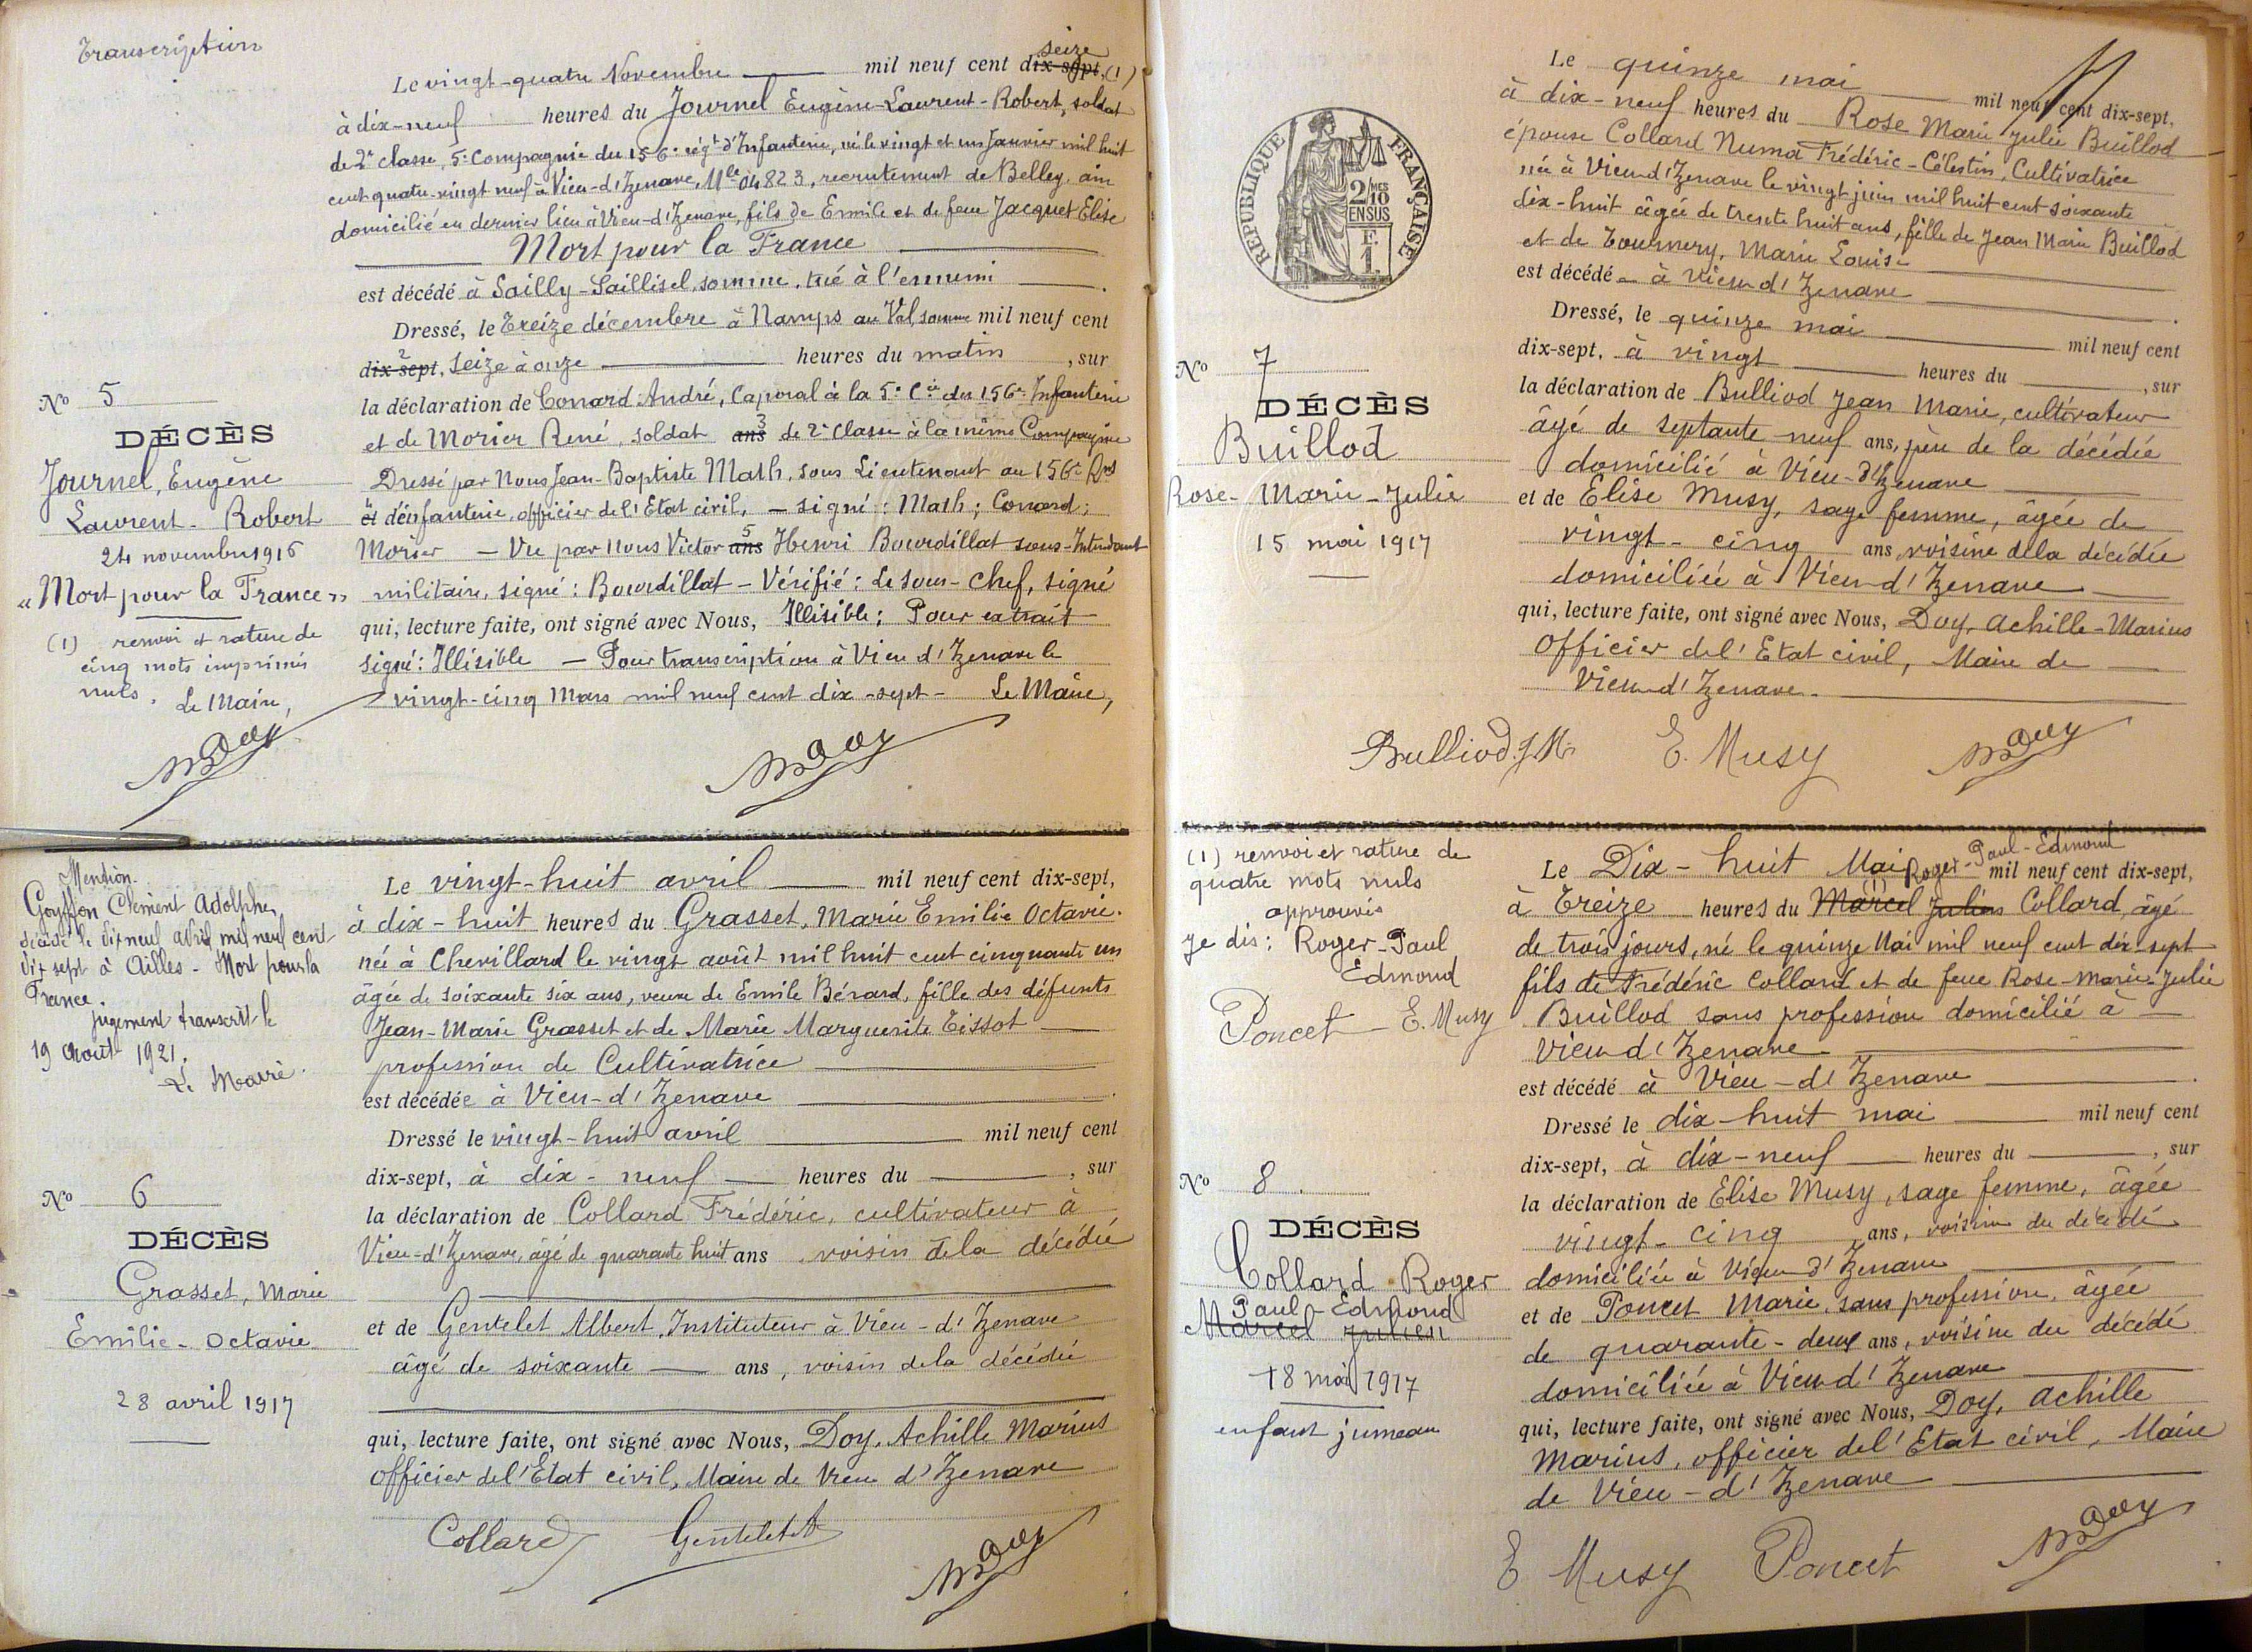 Transcription
Le vingt-quatre Novembre mil neuf cent dix-sept, seize (1)
à dix-neuf heures du Journel Eugène-Laurent-Robert, soldat
de 2e classe, 5e Compagnie du 156e régt d'Infanterie, né le vingt et un Janvier mil huit
cent quatre-vingt neuf à Vieu-d'Izenave, Mle 04823, recrutement de Belley. ain
domicilié en dernier lieu à Vieu-d'Izenave, fils de Emile et de feue Jacquet Elise
Mort pour la France
est décédé à Sailly-Saillisel, somme, tué à l'ennemi
Dressé, le treize décembre à Namps au Val somme mil neuf cent
dix-sept, 2 seize à onze heures du matin, sur
la déclaration de Conard André, Caporal à la 5e Cie du 156e Infanterie
et de Morier René, soldat ans 3 de 2e classe à la même Compagnie
Dressé par Nous Jean-Baptiste Math, sous Lieutenant au 156e Rgt
et 4 d'infanterie, officier de l'Etat civil, — signé : Math ; Conard ;
Morier — Vu par Nous Victor ans 5 Henri Bourdillat sous-Intendant
militaire, signé : Bourdillat — Vérifié : Le sous-chef, signé
qui, lecture faite, ont signé avec Nous, Illisible ; Pour extrait
signé : Illisible — Pour transcription à Vieu d'Izenave le
vingt-cinq Mars mil neuf cent dix-sept - Le Maire,
ADoy
No 5
DÉCÈS
Journel, Eugène
Laurent - Robert
24 novembre 1916
« Mort pour la France »
(1) renvoi et rature de
cinq mots imprimés
nuls. Le Maire,
ADoy
Mention.
Goyffon Clément Adolphe,
décédé le dix neuf avril mil neuf cent
dix sept à Ailles - Mort pour la
France.
jugement transcrit le
19 Août 1921.
Le Maire.
No 6
DÉCÈS
Grasset, Marie
Emilie - Octavie
28 avril 1917
Le vingt-huit avril mil neuf cent dix-sept,
à dix-huit heures du Grasset, Marie Emilie Octavie.
née à Chevillard le vingt août mil huit cent cinquante un
âgée de soixante six ans, veuve de Emile Bérard, fille des défunts
Jean-Marie Grasset et de Marie Marguerite Tissot
profession de Cultivatrice
est décédée à Vieu-d'Izenave
Dressé le vingt-huit avril mil neuf cent
dix-sept, à dix-neuf heures du , sur
la déclaration de Collard Frédéric, cultivateur à
Vieu-d'Izenave, âgé de quarante huit ans voisin de la décédée
et de Gentelet Albert, Instituteur à Vieu-d'Izenave
âgé de soixante ans, voisin de la décédée
qui, lecture faite, ont signé avec Nous, Doy, Achille Marius
officier de l'Etat civil, Maire de Vieu d'Izenave
Collard Gentelet A ADoy
REPUBLIQUE FRANÇAISE
2/10 MES
EN SUS
F.
1
No 7
DÉCÈS
Buillod
Rose-Marie-Julie
15 mai 1917
Le quinze mai mil neuf cent dix-sept,
à dix-neuf heures du Rose Marie Julie Buillod
épouse Collard Numa Frédéric-Célestin, Cultivatrice
née à Vieu d'Izenave le vingt juin mil huit cent soixante
dix-huit âgée de trente huit ans, fille de Jean Marie Buillod
et de Tournery, Marie Louise
est décédée à Vieu d'Izenave
Dressé, le quinze mai mil neuf cent
dix-sept, à vingt heures du , sur
la déclaration de Bulliod Jean Marie, cultivateur
âgé de septante-neuf ans, père de la décédée
domicilié à Vieu-d'Izenave
et de Elise Musy, sage femme, âgée de
vingt-cinq ans, voisine de la décédée
domiciliée à Vieu d'Izenave
qui, lecture faite, ont signé avec Nous, Doy, Achille-Marius
Officier de l'Etat civil, Maire de
Vieu d'Izenave.
Bulliod J. M. E. Musy ADoy
(1) renvoi et rature de
quatre mots nuls
approuvés
je dis : Roger-Paul
Edmond
Poncet - E. Musy
No 8
DÉCÈS
Collard Roger
Paul - Edmond
Marcel Julien
18 mai 1917
enfant jumeau
Le Dix-huit Mai mil neuf cent dix-sept,
Roger-Paul-Edmond
à Treize heures du Marcel (1) Julien Collard, âgé
de trois jours, né le quinze Mai mil neuf cent dix-sept
fils de Frédéric Collard et de feue Rose-Marie-Julie
Buillod sans profession domicilié à
Vieu d'Izenave
est décédé à Vieu-d'Izenave
Dressé le dix-huit mai mil neuf cent
dix-sept, à dix-neuf heures du , sur
la déclaration de Elise Musy, sage femme, âgée
vingt-cinq ans, voisine du décédé
domiciliée à Vieu d'Izenave
et de Poncet Marie, sans profession, âgée
de quarante-deux ans, voisine du décédé
domiciliée à Vieu d'Izenave
qui, lecture faite, ont signé avec Nous, Doy, Achille
Marius, officier de l'Etat civil, Maire
de Vieu-d'Izenave
E Musy Poncet ADoy